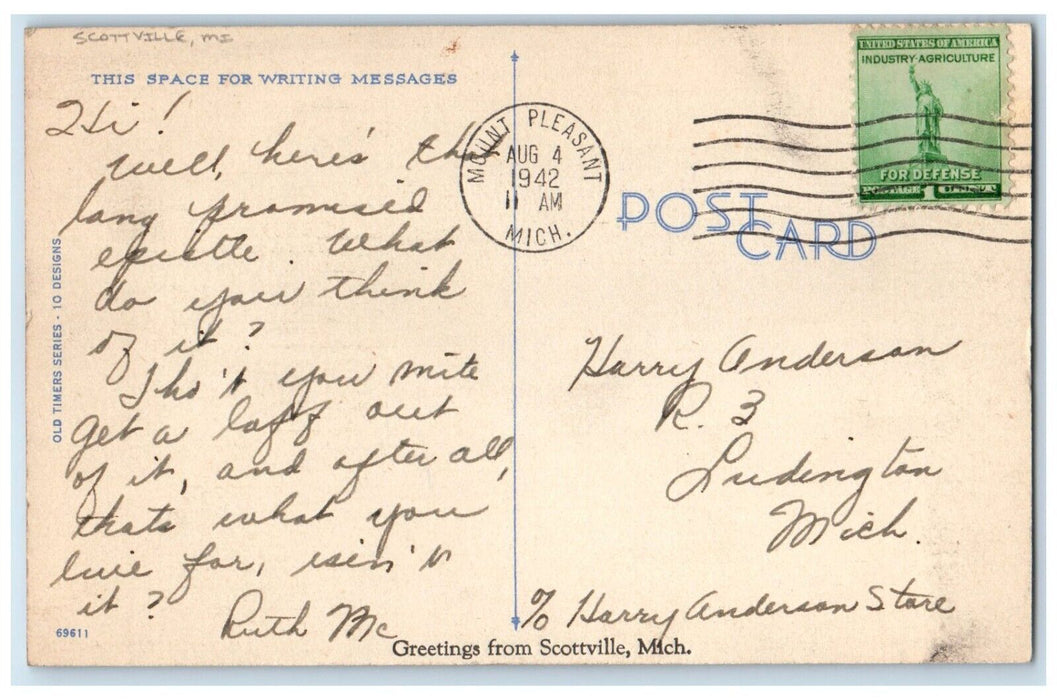 SCOTTVILLE, MI
THIS SPACE FOR WRITING MESSAGES
Hi!
Well, here's the
long promised
epistle. What
do you think
of it?
Tho't you mite
get a laff out
of it, and after all,
thats what you
live for, isin't
it?
Ruth Mc
OLD TIMERS SERIES - 10 DESIGNS
69611
Greetings from Scottville, Mich.
MOUNT PLEASANT
AUG 4
1942
11 AM
MICH.
UNITED STATES OF AMERICA
INDUSTRY-AGRICULTURE
FOR DEFENSE
POSTAGE 1
POST
CARD
Harry Anderson
R. 3
Ludington
Mich.
% Harry Anderson Store